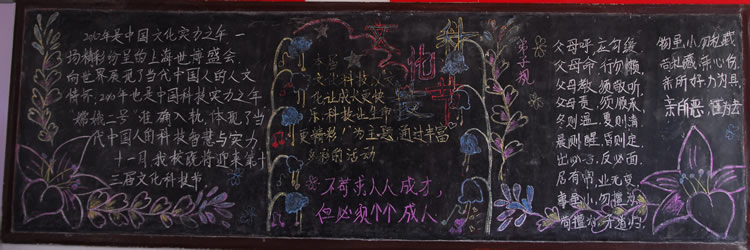 2010年是中国文化实力之年，一
场精彩纷呈的上海世博盛会，
向世界展现了当代中国人的人文
情怀；2010年也是中国科技实力之年，
"嫦娥二号"准确入轨，体现了当
代中国人的科技智慧与实力。
十一月我校既将迎来第十
三届文化科技节
文化
科技节
以"文化科技
化让成长更快
乐，科技让生命
更精彩!"为主题通过丰富
多彩的活动
不苛求人人成才，
但必须个个成人
弟子规
父母呼，应勿缓，
父母命，行勿懒，
父母教，须敬听，
父母责，须顺承，
冬则温，夏则凊，
晨则醒，昏则定，
出必告，反必面，
居有常，业无变，
事虽小，勿擅为，
苟擅为，子道亏，
物虽小，勿私藏
苟私藏，亲心伤
亲所好，力为具
亲所恶，谨为去